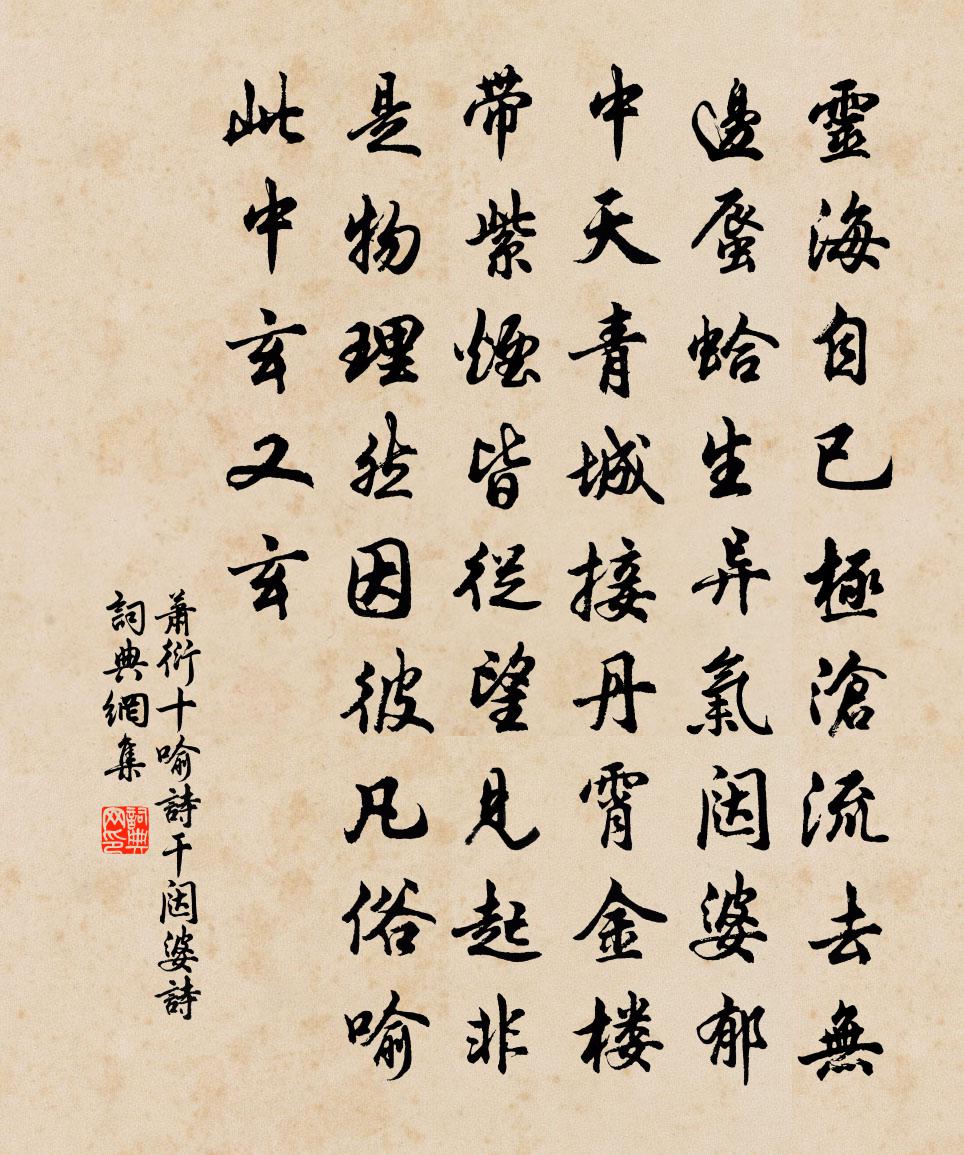 靈海自已極滄流去無
邊蜃蛤生异氣闼婆郁
中天青城接丹霄金楼
带紫煙皆從望見起非
是物理然因彼凡俗喻
此中玄又玄
蕭衍十喻詩干闼婆詩
詞典網集
詞典网印